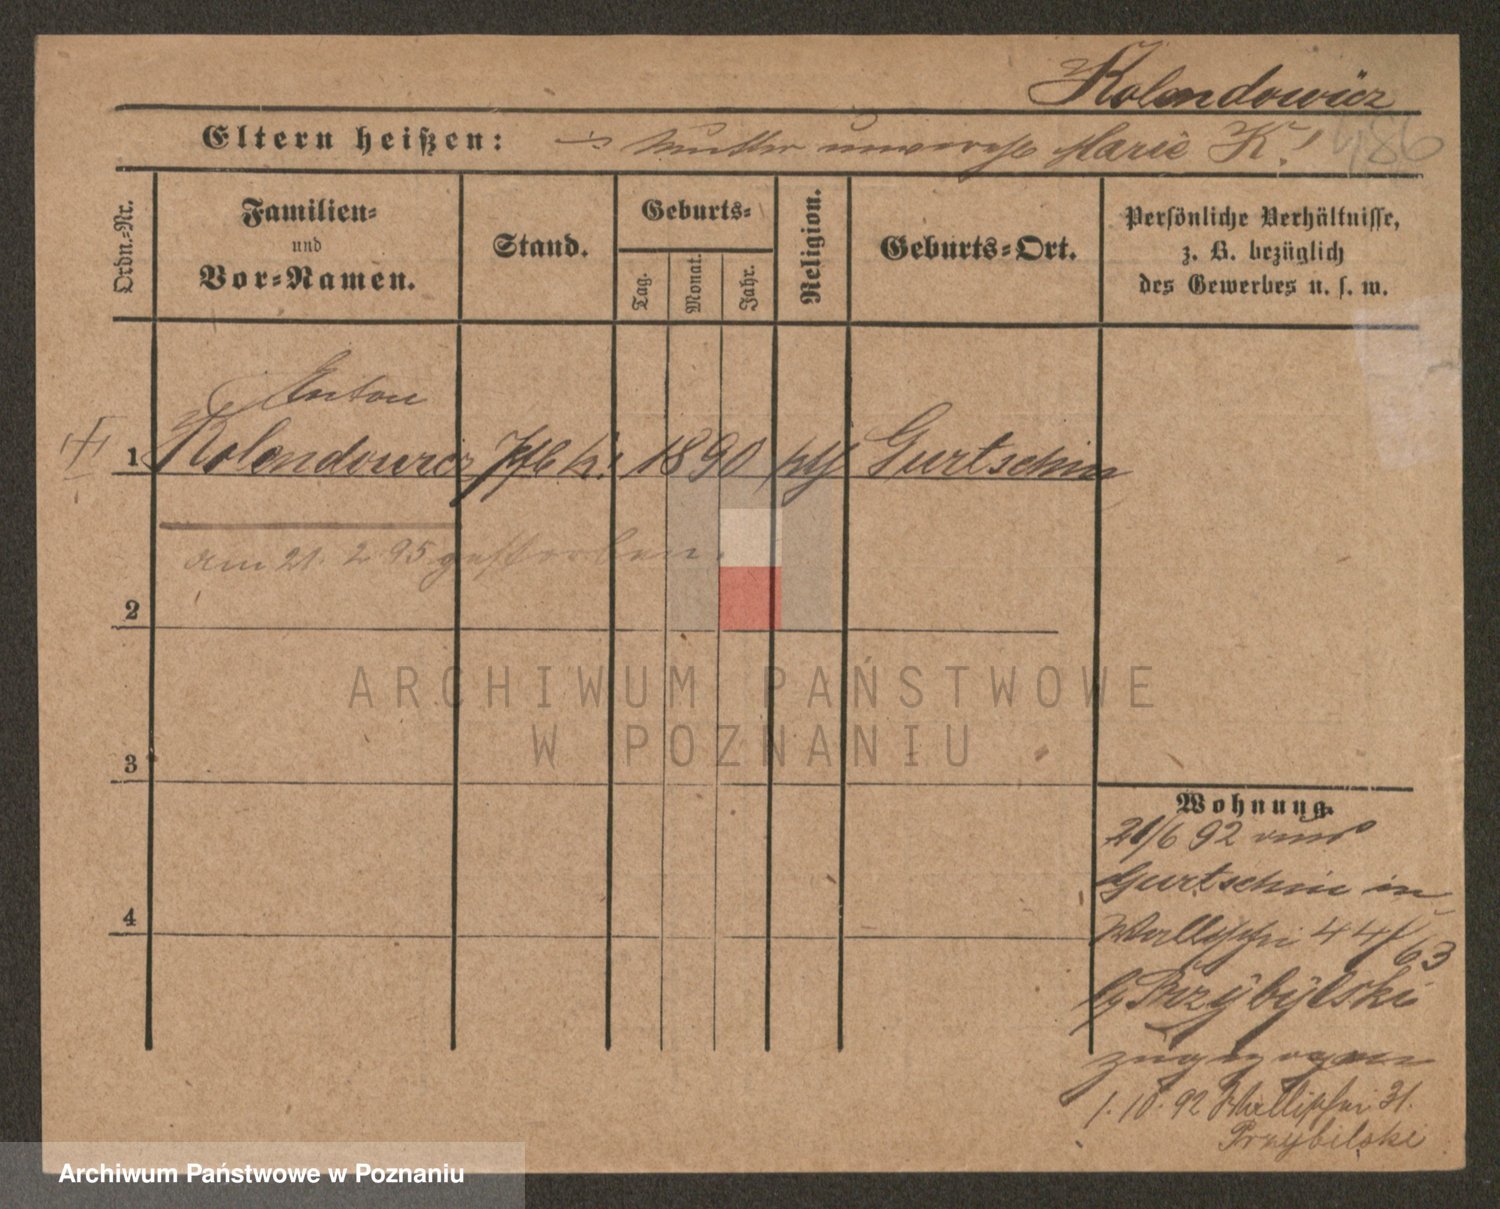 Kolendowicz
Eltern heißen: Mutter unverehl Marie K. 486
Ordn.-Nr.
Familien-
und
Vor-Namen.
Stand.
Geburts-
Tag.
Monat.
Jahr.
Religion.
Geburts-Ort.
Persönliche Verhältnisse,
z. B. bezüglich
des Gewerbes u. s. w.
Anton
1 Kolendowicz 1890 Gurtschin
am 21. 2 95 gestorben.
2
3
4
Wohnung.
21/6 92 von
Gurtschin in
Wallischei 44/63
Przÿbÿlski
zugezogen
1. 10. 92 Wallischei 31.
Przybilski
ARCHIWUM PAŃSTWOWE
W POZNANIU
Archiwum Państwowe w Poznaniu